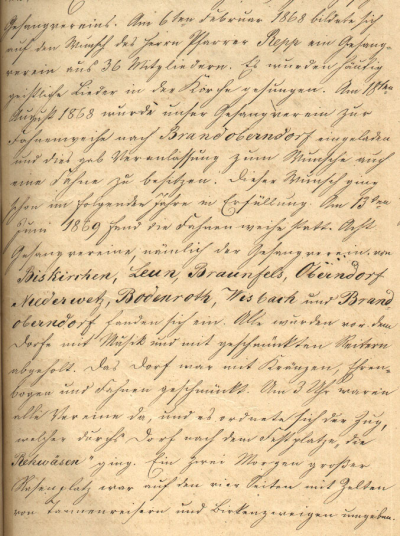 Gesangvereins. Am 6ten Februar 1868 bildete sich
auf den Wunsch des Herrn Pfarrer Repp ein Gesang-
verein aus 36 Mitgliedern. Es wurden häufig
geistliche Lieder in der Kirche gesungen. Am 18ten
August 1868 wurde unser Gesangverein zur
Fahnenweihe nach Brandoberndorf eingeladen
und dies gab Veranlassung zum Wunsche auch
eine Fahne zu besitzen. Dieser Wunsch ging
schon im folgenden Jahre in Erfüllung. Am 13ten
Juni 1869 fand die Fahnenweihe statt. Acht
Gesangvereine, nämlich der Gesangverein von
Biskirchen, Leun, Braunfels, Oberndorf
Niederwetz, Bodenroth, Wesbach und Brand
oberndorf fanden sich ein. Alle wurden vor dem
Dorfe mit Musik und mit geschmückten Reitern
abgeholt. Das Dorf war mit Kränzen, Ehren-
bogen und Fahnen geschmückt. Am 3 Uhr waren
alle Vereine da, und es ordnete sich der Zug,
welcher durchs Dorf nach dem Festplatze, die
"Rehwäsen" ging. Ein zwei Morgen großer
Rasenplatz war auf den vier Seiten mit Zelten
von Tannenreisern und Birkenzweigen umgeben.